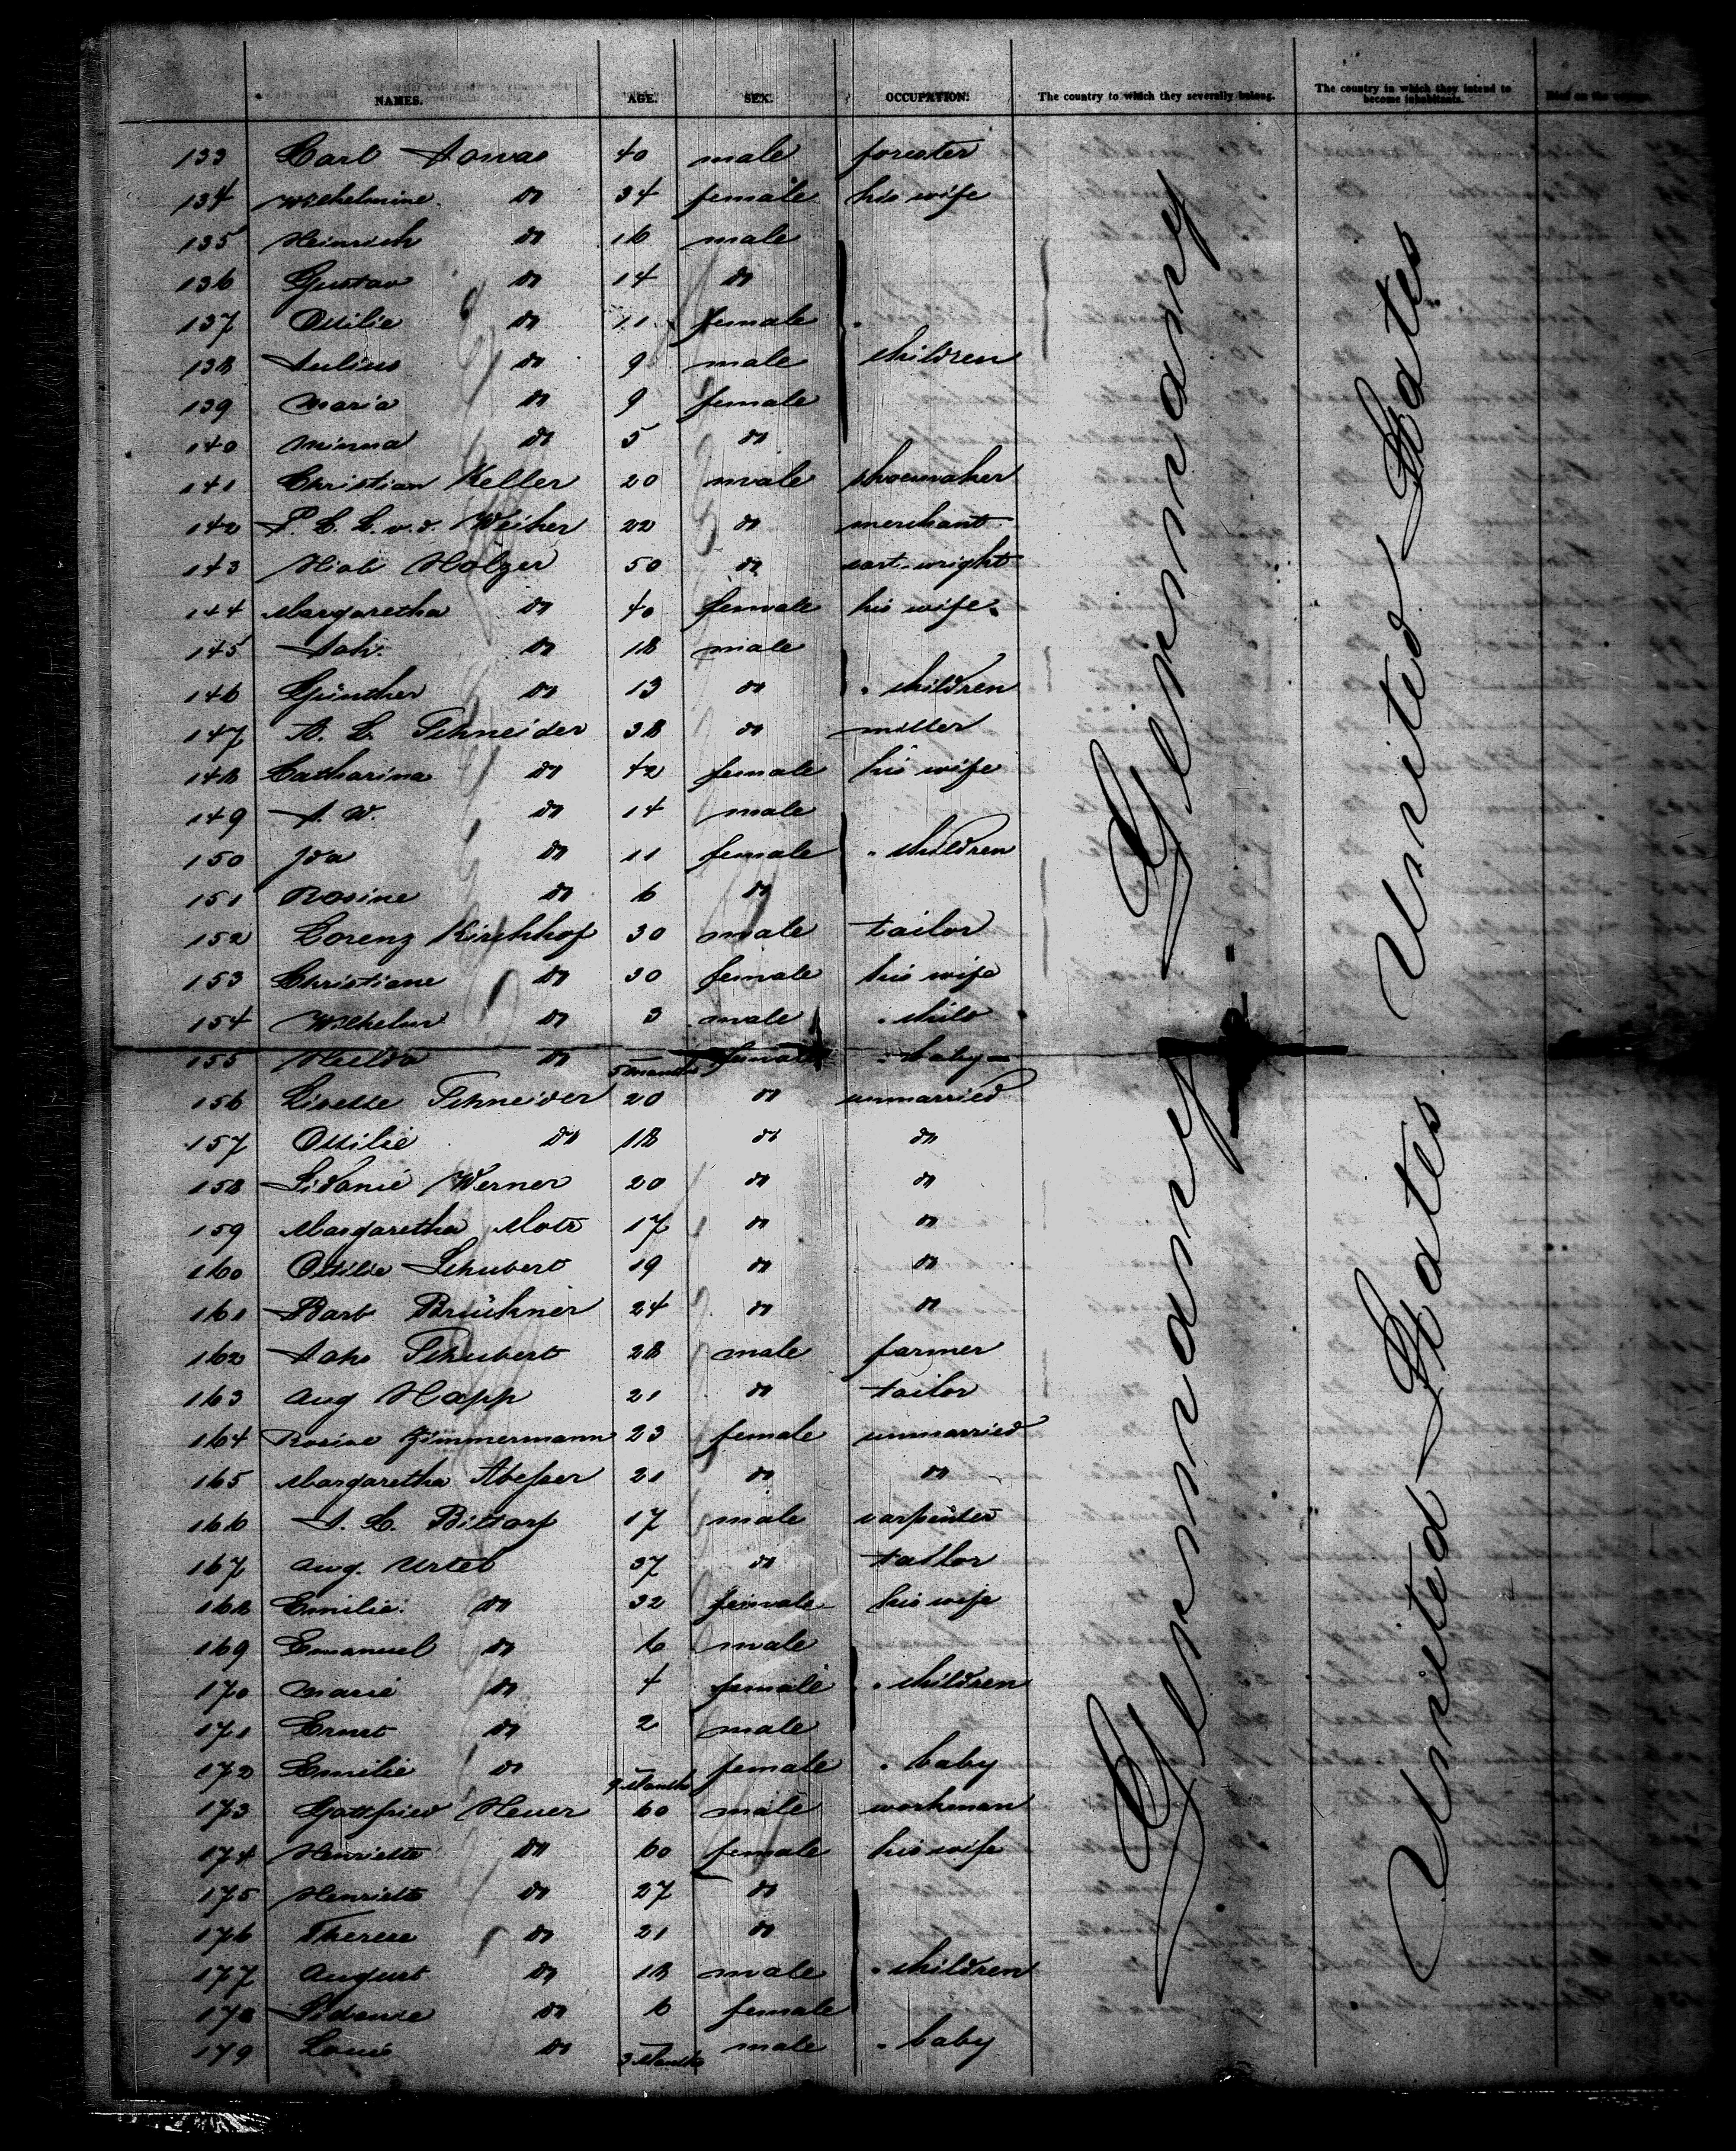 NAMES. AGE. SEX. OCCUPATION. The country to which they severally belong. The country in which they intend to become inhabitants. Died on the voyage.
133 Carl 40 male forester
134 Wilhelmine do 34 female his wife
135 Heinrich do 16 male
136 Gustav do 14 do
137 Ottilie do 11 female
138 Julius do 9 male children
139 Maria do 9 female
140 Minna do 5 do
141 Christian Keller 20 male shoemaker
142 P. C. L. v. d. Weiher 22 do merchant
143 Holzer 50 do cart-wright
144 Margaretha do 40 female his wife
145 Joh. do 18 male
146 Günther do 13 do children
147 A. L. Schneider 38 do miller
148 Catharina do 42 female his wife
149 A. W. do 14 male
150 Ida do 11 female children
151 Rosine do 6 do
152 Lorenz Kirchhof 30 male tailor
153 Christiane do 30 female his wife
154 Wilhelm do 3 male child
155 Hulda do 5 months female baby
156 Lisette Schneider 20 do unmarried
157 Ottilie do 18 do do
158 Sidonie Werner 20 do do
159 Margaretha 17 do do
160 Ottilie Schubert 19 do do
161 Barb Brückner 24 do do
162 Johs Schubert 28 male farmer
163 Aug Happ 21 do tailor
164 Rosine Zimmermann 23 female unmarried
165 Margaretha Abesser 21 do do
166 Bittorf 17 male carpenter
167 Aug. Urtel 37 do tailor
168 Emilie do 32 female his wife
169 Emanuel do 6 male
170 Marie do 4 female children
171 Ernst do 2 male
172 Emilie do 9 Months female baby
173 Gottfried Heuer 60 male workman
174 Henriette do 60 female his wife
175 Henriette do 27 do
176 Therese do 21 do
177 August do 18 male children
178 Sidonie do 6 female
179 Louis do 3 Months male baby
Germany
United States
Germany
United States